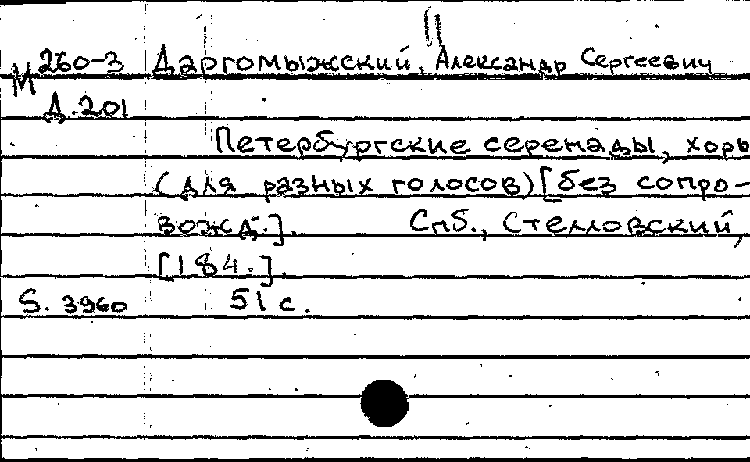 М 260-3 Даргомыжский, Александр Сергеевич
Д.201
Петербургские серенады, хоры
(для разных голосов) [без сопро-
вожд.]. Спб., Стелловский,
[184.].
S. 3960 51 с.